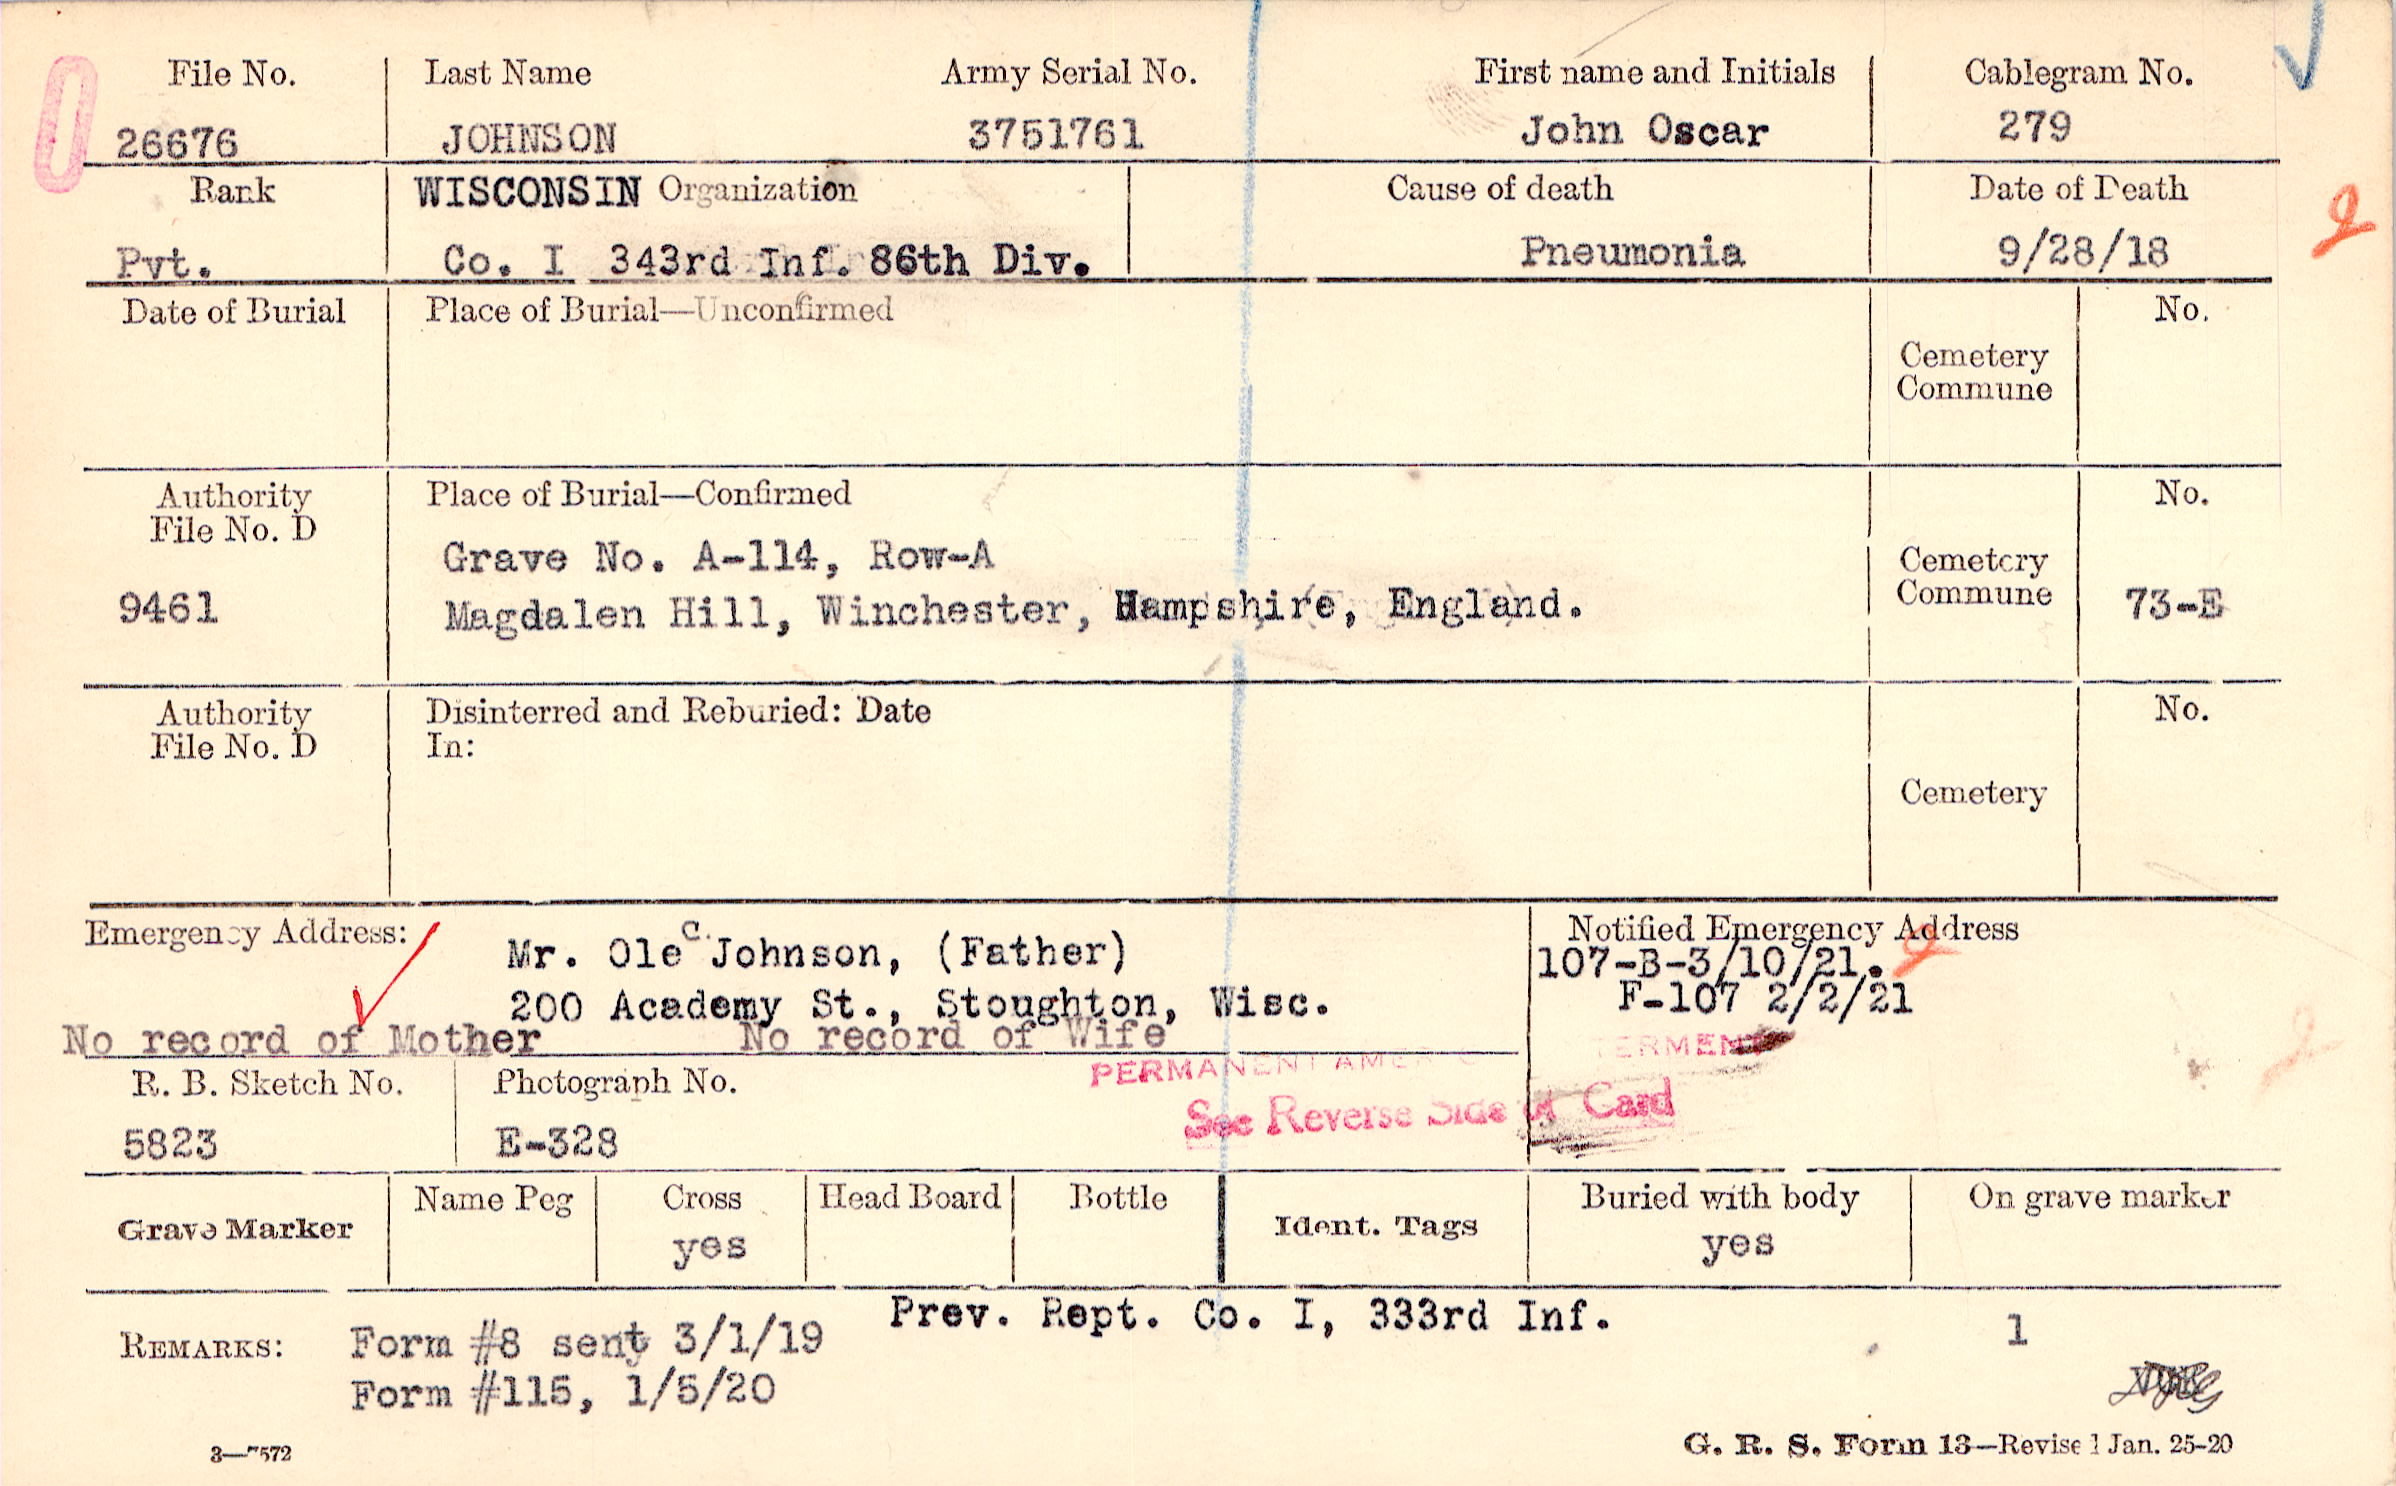 File No. Last Name Army Serial No. First name and Initials Cablegram No.
26676 JOHNSON 3751761 John Oscar 279
Rank WISCONSIN Organization Cause of death Date of Death
Pvt. Co. I 343rd Inf. 86th Div. Pneumonia 9/28/18
Date of Burial Place of Burial—Unconfirmed No.
Cemetery
Commune
Authority Place of Burial—Confirmed No.
File No. D
Grave No. A-114, Row-A Cemetery
9461 Magdalen Hill, Winchester, Hampshire, England. Commune 73-E
Authority Disinterred and Reburied: Date No.
File No. D In:
Cemetery
Emergency Address: Notified Emergency Address
Mr. Ole C. Johnson, (Father) 107-B-3/10/21.
200 Academy St., Stoughton, Wisc. F-107 2/2/21
No record of Mother No record of Wife
PERMANENT
R. B. Sketch No. Photograph No.
See Reverse Side of Card
5823 E-328
Grave Marker Name Peg Cross Head Board Bottle Ident. Tags Buried with body On grave marker
yes yes
Prev. Rept. Co. I, 333rd Inf. 1
REMARKS: Form #8 sent 3/1/19
Form #115, 1/5/20
3—7572 G. R. S. Form 13—Revised Jan. 25-20